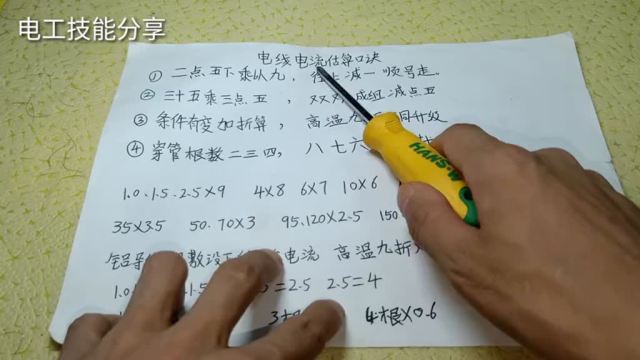 电工技能分享
电线电流估算口诀
① 二点五下乘以九，往上减一顺号走。
② 三十五乘三点五，双双成组减点五
③ 条件有变加折算，高温九 同升级
④ 穿管根数二三四，八七六
1.0.1.5.2.5×9 4×8 6×7 10×6
35×3.5 50.70×3 95.120×2.5 150
铝 数 电流 高温九折
1.0 1.5 =2.5 2.5=4
3根 4根×0.6
HANS-W